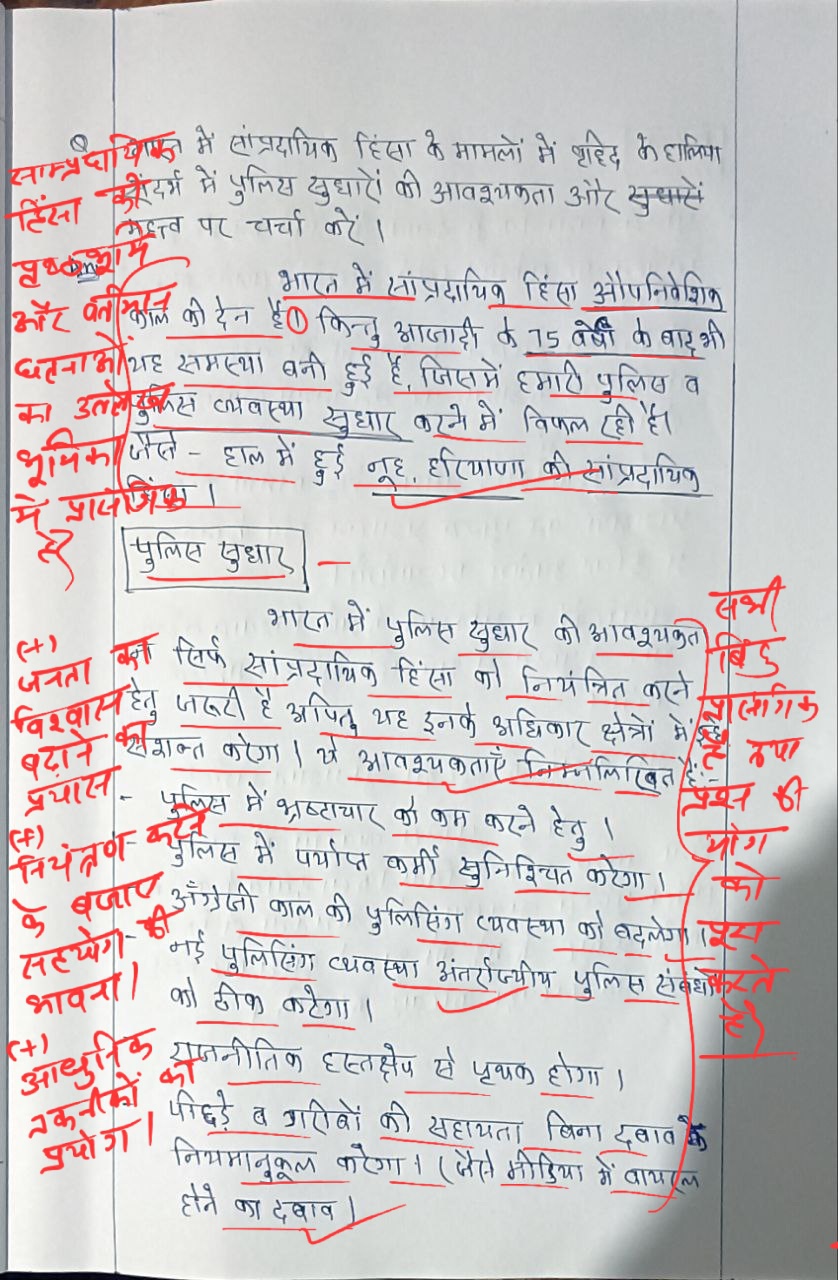 भारत में सांप्रदायिक हिंसा के मामलों में वृद्धि के हालिया
संदर्भ में पुलिस सुधारों की आवश्यकता और सुधारों
महत्त्व पर चर्चा करें।
भारत में सांप्रदायिक हिंसा औपनिवेशिक
काल की देन है। किन्तु आजादी के 75 वर्षों के बाद भी
यह समस्या बनी हुई है, जिसमें हमारी पुलिस व
पुलिस व्यवस्था सुधार करने में विफल रही है।
जैसे - हाल में हुई नूह, हरियाणा की सांप्रदायिक
हिंसा।
साम्प्रदायिक
हिंसा की
पृष्ठभूमि
और वर्तमान
घटनाओं
का उल्लेख
भूमिका
में प्रासंगिक
है
पुलिस सुधार
भारत में पुलिस सुधार की आवश्यकता
न सिर्फ सांप्रदायिक हिंसा को नियंत्रित करने
हेतु जरूरी है अपितु यह इनके अधिकार क्षेत्रों में इन्हें
सशक्त करेगा। ये आवश्यकताएँ निम्नलिखित हैं:-
- पुलिस में भ्रष्टाचार को कम करने हेतु।
पुलिस में पर्याप्त कर्मी सुनिश्चित करेगा।
अँग्रेजी काल की पुलिसिंग व्यवस्था को बदलेगा।
- नई पुलिसिंग व्यवस्था अंतर्राज्यीय पुलिस संबंधों
को ठीक करेगा।
राजनीतिक हस्तक्षेप से पृथक होगा।
पिछड़े व गरीबों की सहायता बिना दबाव के
नियमानुकूल करेगा। (जैसे मीडिया में वायरल
होने का दबाव)
(+)
जनता का
विश्वास
बढ़ाने का
प्रयास
(+)
नियंत्रण करने
के बजाए
सहयोग की
भावना।
(+)
आधुनिक
तकनीकों का
प्रयोग।
सभी
बिंदु
प्रासंगिक
है तथा
प्रश्न की
मांग
को
पूरा
करते
है